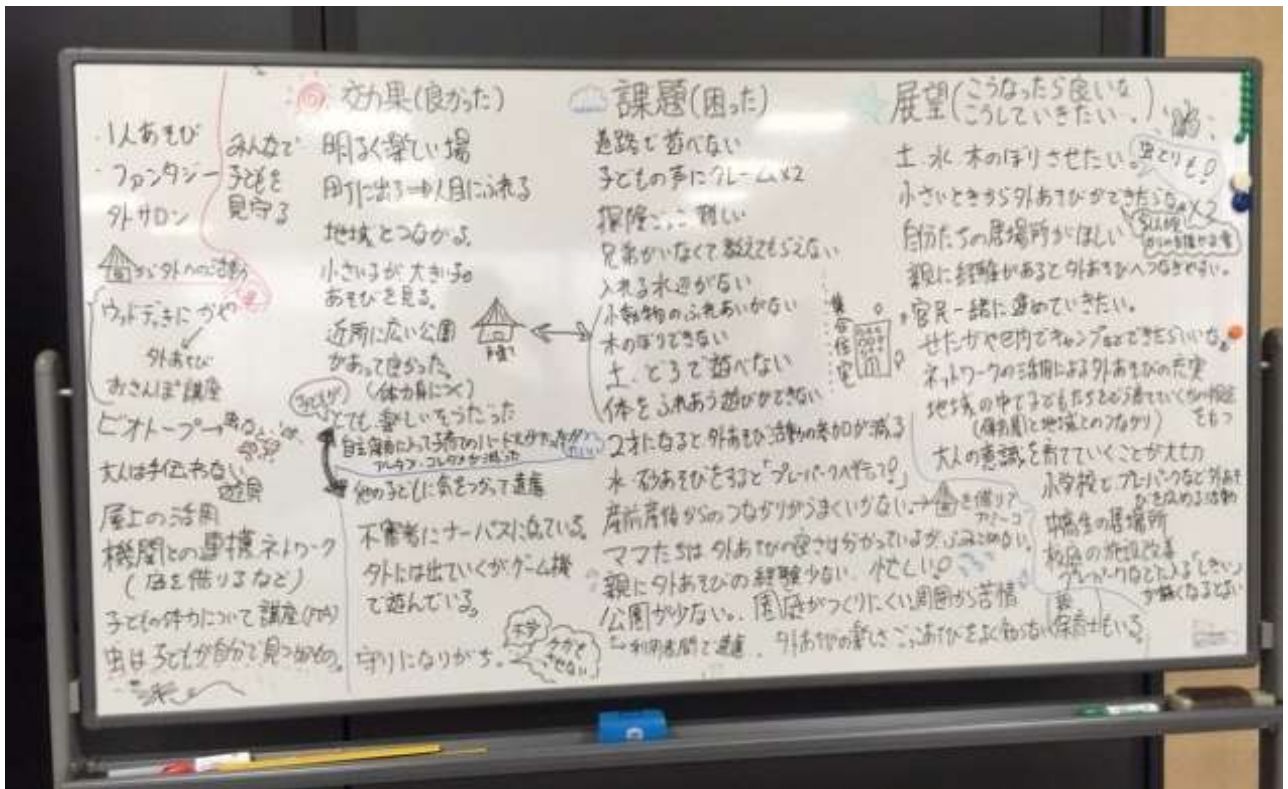 ・1人あそび
・ファンタジー
外サロン
みんなで
子どもを
見守る
から外への活動
ウッドデッキに
外あそび
おさんぽ講座
ビオトープ→
大人は手伝わない
遊具
屋上の活用
機関との連携ネットワーク
(店を借りるなど)
子どもの体力について講座
虫は子どもが自分で見つけるもの。
効果(良かった)
明るく楽しい場
町に出る→人目にふれる
地域とつながる。
小さい子が大きい子の
あそびを見る。
近所に広い公園
があって良かった。
(体力身につく)
とても楽しそうだった
他の子どもに気をつかって遠慮
不審者にナーバスになっている。
外には出ていくがゲーム機
で遊んでいる。
守りになりがち。
ケガを
させない
課題(困った)
道路で遊べない
子どもの声にクレーム×2
探険ごっこ難しい
兄弟がいなくて教えてもらえない
入れる水辺がない
小動物のふれあいがない
木のぼりできない
土、どろで遊べない
体をふれあう遊びができない
集合住宅
2才になると外あそび活動の参加が減る
水・砂あそびをすると「プレーパークへ行って!」
産前産後からのつながりがうまくいかない→
を借りて
ママたちは外あそびの良さは分かっているが、ふみこめない。
親に外あそびの経験少ない 忙しい!
公園が少ない。園庭がつくりにくい周囲から苦情
利用者間で遠慮
外あそびの楽しさごっこあそびをよく知らない保育士もいる。
展望(こうなったら良いな
こうしていきたい。)
土、水、木のぼりさせたい。
虫とりも!
小さいときから外あそびができたらな ×2
自分たちの居場所がほしい
親に経験があると外あそびへつなぎやすい。
官民一緒に進めていきたい。
せたがや区内でキャンプなどできたらいいな。
ネットワークの活用による外あそびの充実
地域の中で子どもたちを
(保育園と地域とのつながり)
大人の意識を育てていくことが大切
小学校とプレーパークなど外あそ
びを広める活動
中高生の居場所
校庭の施設改善
プレーパークなどに入る「しきい」
が低くなるとよい